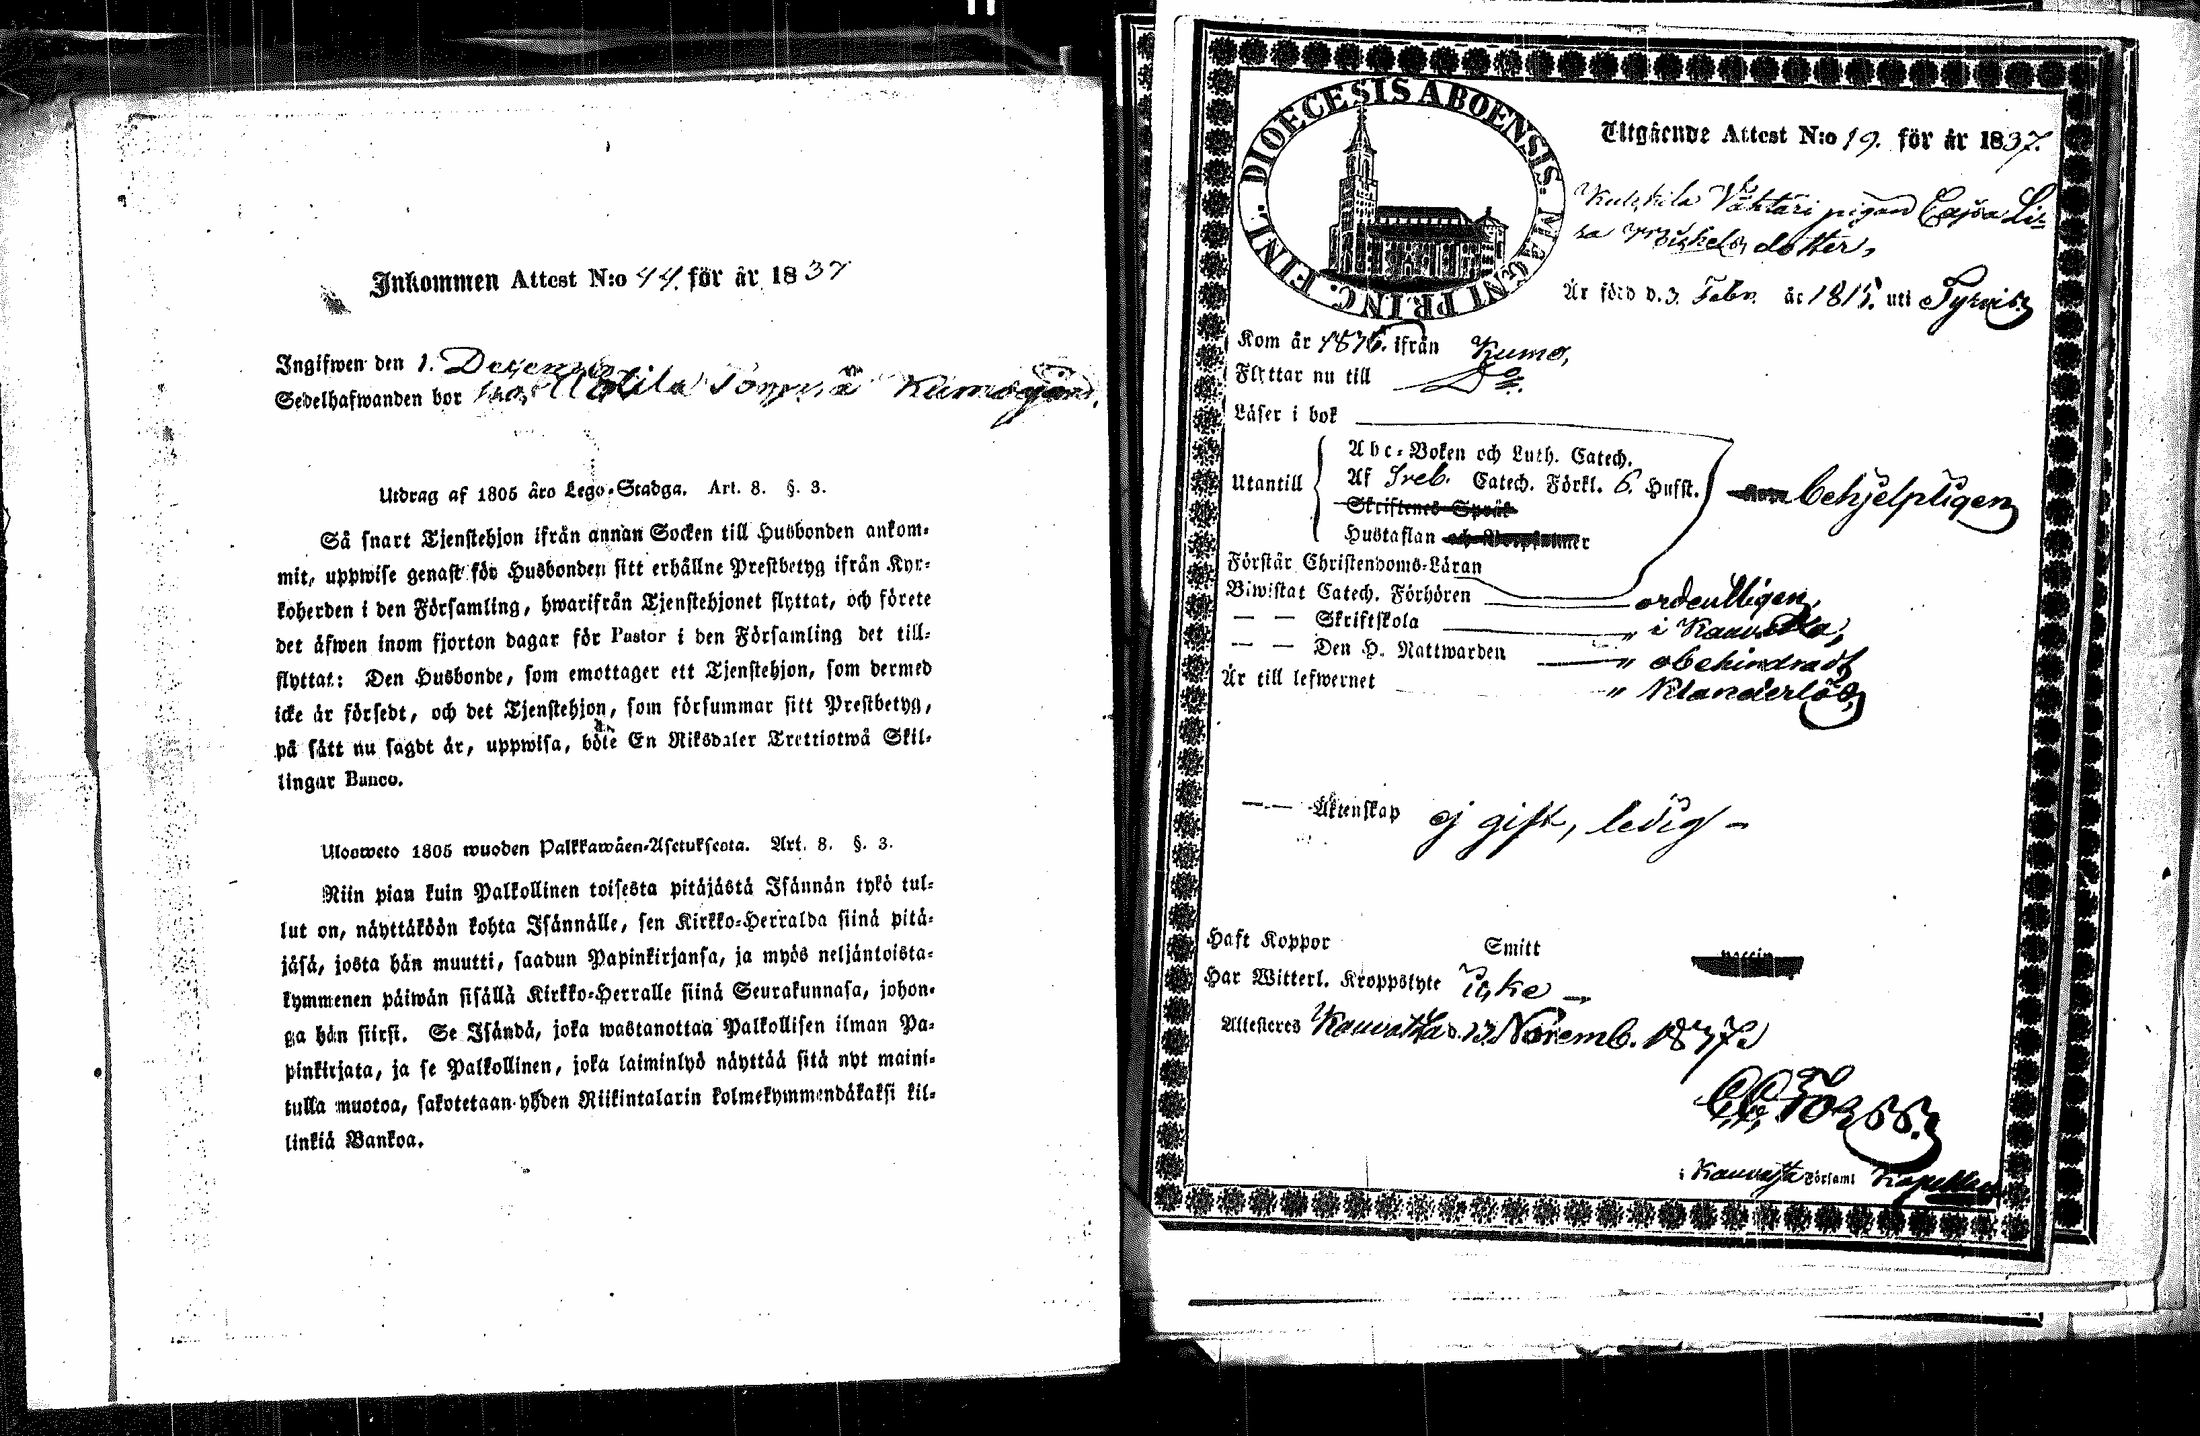 Inkommen Attest N:o 44. för år 1837
Ingifwen den 1. Decemb.
Sedelhafwanden bor hos Kumogård,
Utdrag af 1805 års Lego-Stadga. Art. 8. §. 3.
Så snart Tjenstehjon ifrån annan Socken till Husbonden ankom-
mit, uppwise genast för Husbonden sitt erhållne Prestbetyg ifrån Kyr-
koherden i den Församling, hwarifrån Tjenstehjonet flyttat, och förete
det äfwen inom fjorton dagar för Pastor i den Församling det till-
flyttat: Den Husbonde, som emottager ett Tjenstehjon, som dermed
icke är försedt, och det Tjenstehjon, som försummar sitt Prestbetyg,
på sätt nu sagdt är, uppwisa, böte En Riksdaler Trettiotwå Skil-
lingar Banco.
Ulosweto 1805 wuoden Palkkawäen-Asetuksesta. Art. 8. §. 3.
Niin pian kuin Palkollinen toisesta pitäjästä Isännän tykö tul-
lut on, näyttäköön kohta Isännälle, sen Kirkko-Herralda siinä pitä-
jäsä, josta hän muutti, saadun Papinkirjansa, ja myös neljäntoista-
kymmenen päiwän sisällä Kirkko-Herralle siinä Seurakunnasa, johon-
ga hän siirsi. Se Isändä, joka wastanottaa Palkollisen ilman Pa-
pinkirjata, ja se Palkollinen, joka laiminlyö näyttää sitä nyt maini-
tulla muotoa, sakotetaan yhden Riikintalarin kolmekymmendäkaksi kil-
linkiä Bankoa.
DIOECESIS ABOENSIS. MAGNI PRINC. FINL.
Utgående Attest N:o 19. för år 1837.
Kulkkila Vähtäri pigan Cajsa Li-
sa Michelsdotter,
Är född d. 3. Febr. år 1815. uti Tyrvis.
Kom år 1836. ifrån Kumo,
Flyttar nu till Do.
Läser i bok
Abc-Boken och Luth. Catech.
Utantill Af Sreb. Catech. Förkl. 6. Hufst. behjelpligen
Skriftenes Språk
Hustaflan och
Förstår Christendoms-Läran
Biwistat Catech. Förhören ordentligen,
— — Skriftskola " i Kauvatsa,
— — Den H. Nattwarden " obehindradt
Är till lefwernet " Klanderlös,
— — Äktenskap ej gift, ledig –
Haft Koppor Smitt
Har Witterl. Kroppslyte Icke –
Attesteres Kauvatsa d. 13. Novemb. 1837.
i Kauvatsa Församl Kapellan